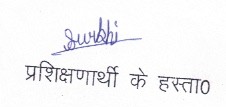 Surbhi
प्रशिक्षणार्थी के हस्ता०